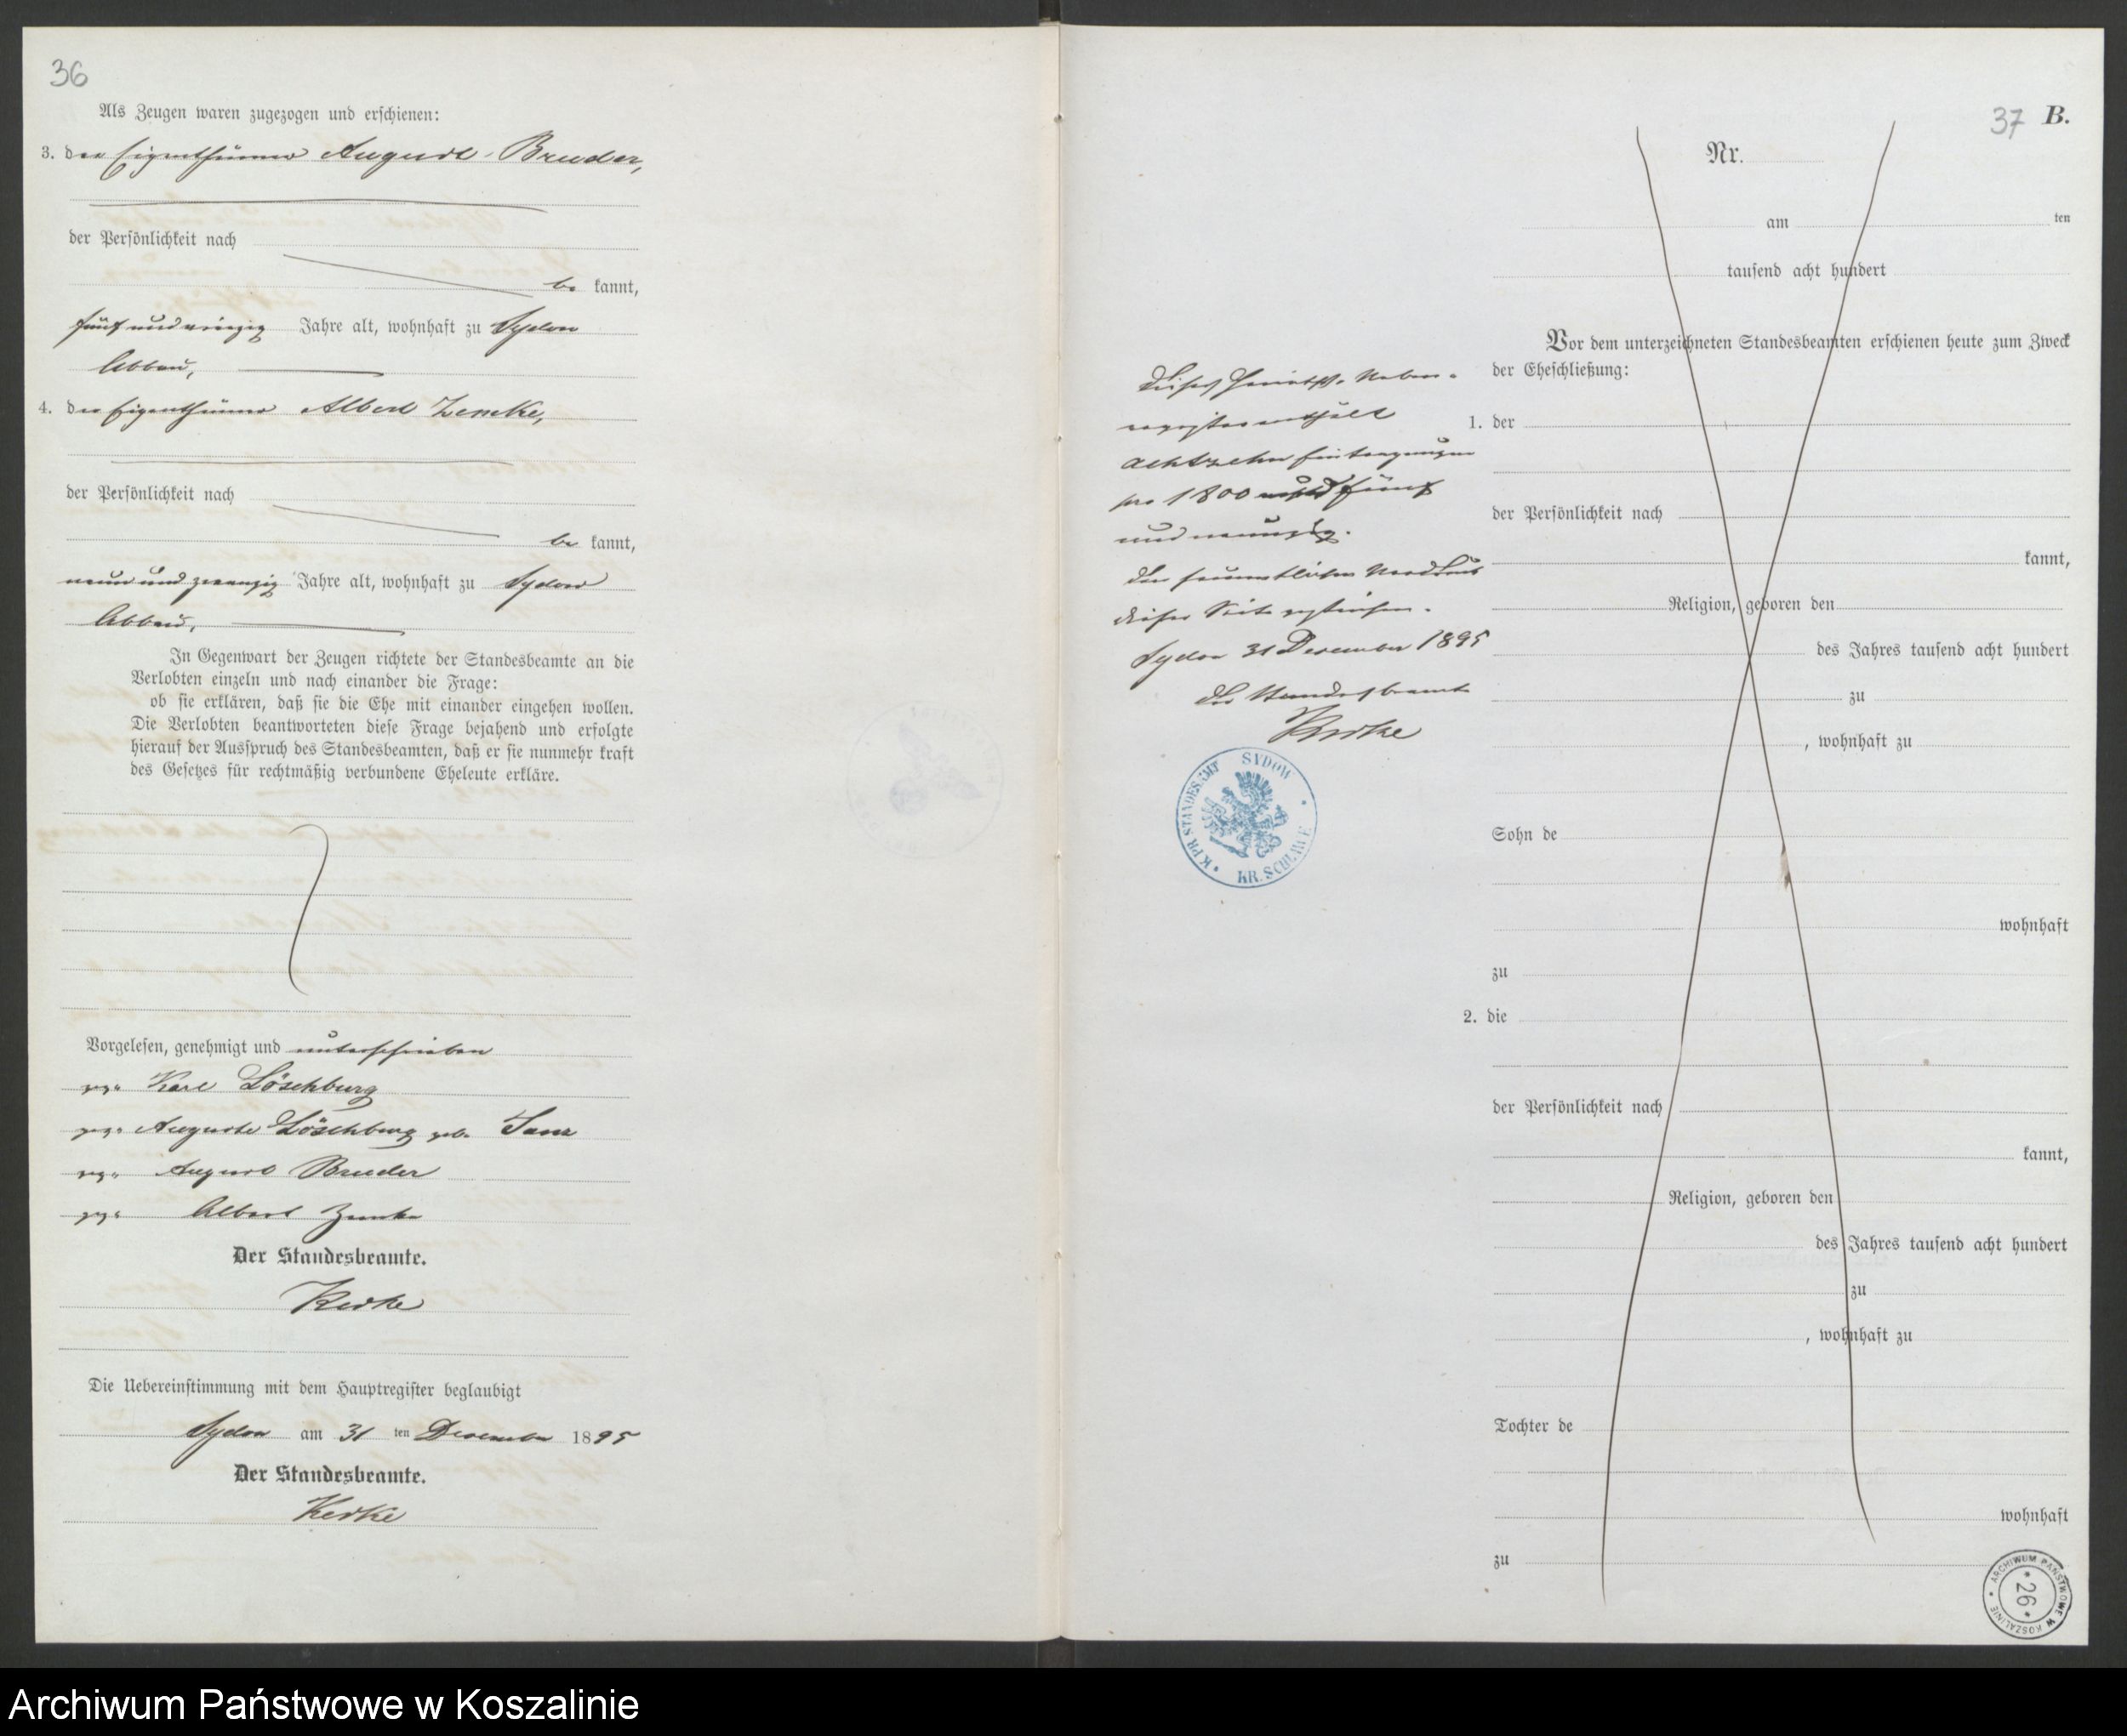 36
Als Zeugen waren zugezogen und erschienen:
3. der Eigenthümer August Bruder,
der Persönlichkeit nach
be kannt,
fünf und vierzig Jahre alt, wohnhaft zu Sydow
Abbau,
4. der Eigenthümer Albert Zemke,
der Persönlichkeit nach
be kannt,
neun und zwanzig Jahre alt, wohnhaft zu Sydow
Abbau,
In Gegenwart der Zeugen richtete der Standesbeamte an die
Verlobten einzeln und nach einander die Frage:
ob sie erklären, daß sie die Ehe mit einander eingehen wollen.
Die Verlobten beantworteten diese Frage bejahend und erfolgte
hierauf der Ausspruch des Standesbeamten, daß er sie nunmehr kraft
des Gesetzes für rechtmäßig verbundene Eheleute erkläre.
Vorgelesen, genehmigt und unterschrieben
gez. Karl Löschburg
gez. Auguste Löschburg geb.
gez. August Bruder
gez. Albert Zemke
Der Standesbeamte.
Die Uebereinstimmung mit dem Hauptregister beglaubigt
Sydow am 31 ten Dezember 1895
Der Standesbeamte.
37 B.
Nr.
am ten
tausend acht hundert
Vor dem unterzeichneten Standesbeamten erschienen heute zum Zweck
der Eheschließung:
1. der
der Persönlichkeit nach
kannt,
Religion, geboren den
des Jahres tausend acht hundert
zu
, wohnhaft zu
Sohn de
wohnhaft
zu
2. die
der Persönlichkeit nach
kannt,
Religion, geboren den
des Jahres tausend acht hundert
zu
, wohnhaft zu
Tochter de
wohnhaft
zu
Dieses Heirats-Neben-
register enthält
achtzehn Eintragungen
pro 1800 und fünf
und neunzig.
Die sämmtlichen Vordrucks
dieser Seite gestrichen.
Sydow 31 Dezember 1895
Der Standesbeamte
K. PR. STANDESAMT SYDOW
KR. SCHLAWE
ARCHIWUM PAŃSTWOWE W KOSZALINIE
26
Archiwum Państwowe w Koszalinie